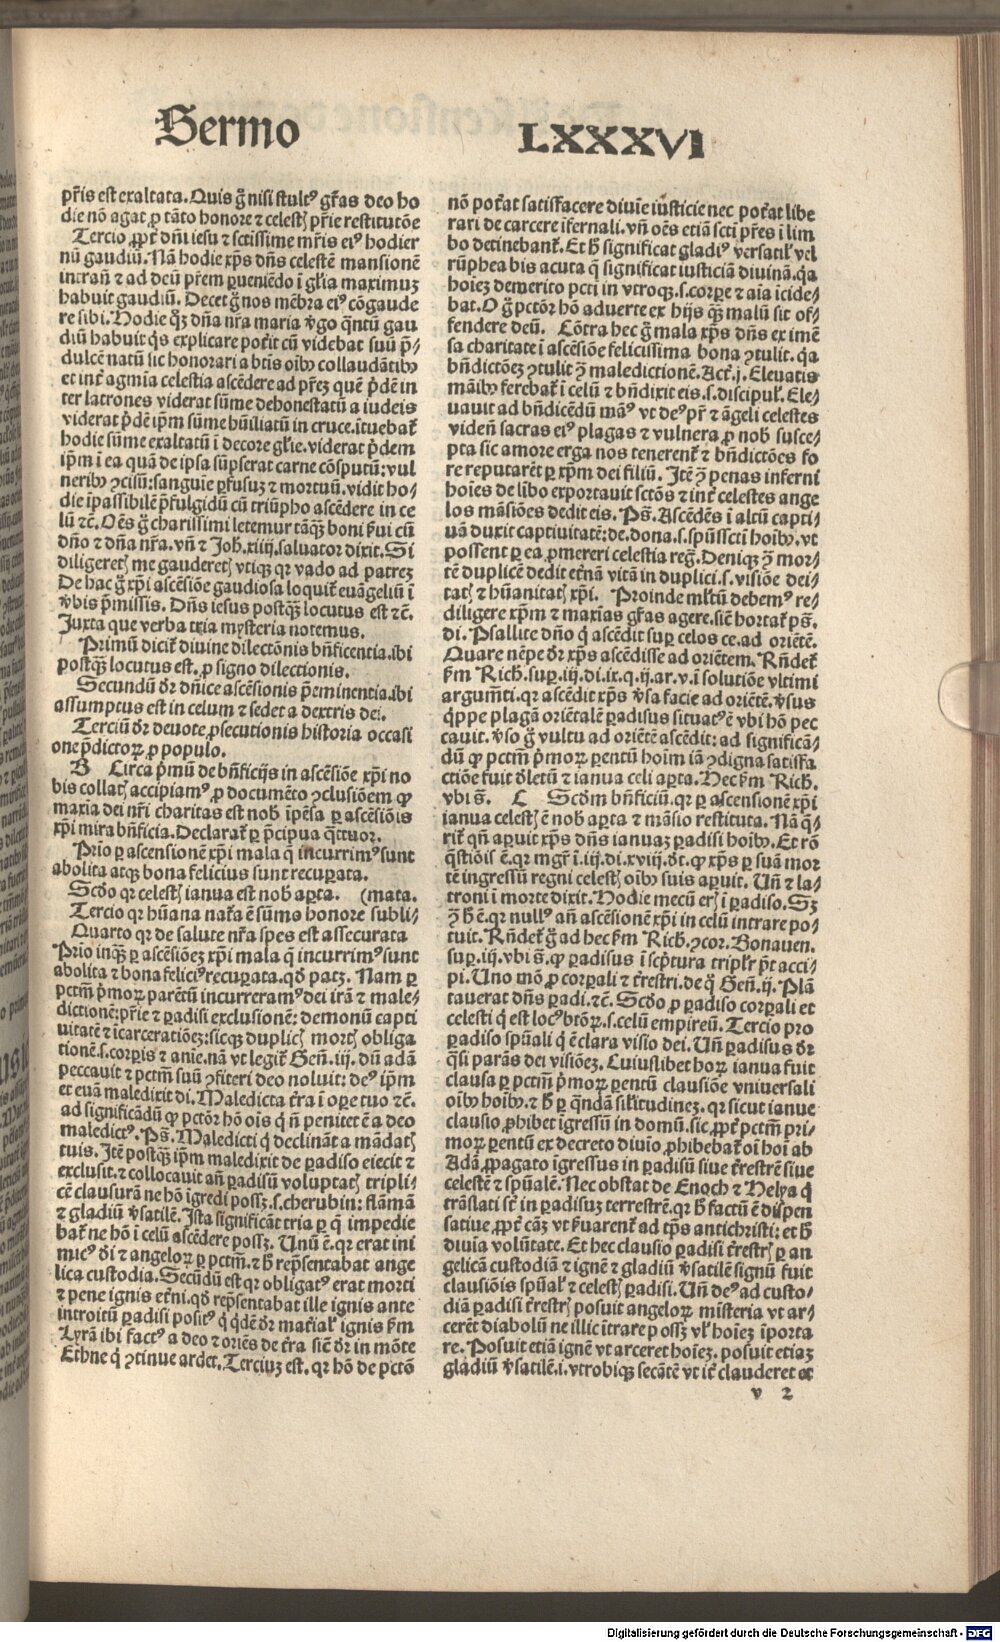 Sermo LXXXVI
pr̄is est exaltata. Quis g̃ nisi stultꝰ gr̄as deo ho
die nō agat ꝓ tāto honore ⁊ celestꝭ pr̄ie restitutōe
Tercio ꝓpt̄ dn̄i iesu ⁊ sctissime mr̄is eiꝰ hodier
nū gaudiū. Nā hodie xp̄s dn̄s celestē mansionē
intrau̅ ⁊ ad deū pr̄em ꝑueniēdo ī gl̄ia maximuꝫ
habuit gaudiū. Decet g̃ nos mēbra eiꝰ cōgaude
re sibi. Hodie qꝫ dn̄a nr̄a maria v̄go q̄ntū gau
diū habuit q̇s explicare pot̄it cū videbat suū p̄-
dulcē natū sic honorari a btīs oībꝰ collaudātibꝰ
et int̄ agmīa celestia ascēdere ad pr̄eꝫ quē p̄dē in
ter latrones viderat sūme dehonestatū a iudeis
viderat p̄dē ip̄m sūme hūiliatū in cruce. ituebat̄
hodie sūme exaltatū ī decore gl̄ie. viderat p̄dem
ip̄m ī ea quā de ipsa sūpserat carne cōsputū: vul
neribꝰ ꝯcisū: sanguīe ꝑfusuꝫ ⁊ mortuū. vidit ho-
die īpassibilē p̄fulgidū cū triūpho ascēdere in ce
lū ⁊c̄. Oēs g̃ charissimi letemur tāqꝫ boni ẜui cū
dn̄o ⁊ dn̄a nr̄a. vn̄ ⁊ Joh̄. xiiij. saluator dixit. Si
diligeretꝭ me gauderetꝭ vtiqꝫ qꝛ vado ad patreꝫ
De hac g̃ xp̄i ascēsiōe gaudiosa loquit̄ euāgeliū ī
v̄bis p̄missis. Dn̄s iesus postqꝫ locutus est ⁊c̄.
Juxta que verba tria mysteria notemus.
Primū dicit̄ diuine dilectōnis bn̄ficentia. ibi
postqꝫ locutus est. ꝓ signo dilectionis.
Secundū dr̄ dn̄ice ascēsionis p̄eminentia. ibi
assumptus est in celum ⁊ sedet a dextris dei.
Terciū dr̄ deuote ꝓsecutionis historia occasi
one p̄dictoꝝ ꝓ populo.
B Circa p̄mū de bn̄ficijs in ascēsiōe xp̄i no
bis collatꝭ accipiamꝰ ꝓ documēto ꝯclusiōem ꝙ
maxīa dei nr̄i charitas est nob̄ ipēsa ꝑ ascēsiōis
xp̄i mira bn̄ficia. Declarat̄ ꝑ p̄cipua q̄ttuor.
Prīo ꝑ ascensionē xp̄i mala q̄ incurrimꝰ sunt
abolita atqꝫ bona felicius sunt recuꝑata.
Scd̄o qꝛ celestꝭ ianua est nob̄ aꝑta. (mata.
Tercio qꝛ hūana nat̄a ē sūmo honore subli-
Quarto qꝛ de salute nr̄a spes est assecurata
Prīo inqꝫ ꝑ ascēsiōeꝫ xp̄i mala q̄ incurrimꝰ sunt
abolita ⁊ bona feliciꝰ recuꝑata. qd̄ patꝫ. Nam ꝑ
pctm̄ p̄moꝝ parētū incurreramꝰ dei irā ⁊ male-
dictionē: pr̄ie ⁊ ꝑadisi exclusionē: demonū capti
uitatē ⁊ icarceratiōeꝫ: sicqꝫ duplicꝭ mortꝭ obliga
tionē. s. corꝑis ⁊ anie. nā vt legit̄ Gen̄. iij. dū adā
peccauit ⁊ pctm̄ suū ꝯfiteri deo noluit: deꝰ ip̄m
et euā maledixit di. Maledicta t̄ra ī oꝑe tuo ⁊c̄.
ad significādū ꝙ pctōr hō ois q̇ n̄ penitet ē a deo
maledictꝰ. Ps̄. Maledicti q̇ declināt a mādatꝭ
tuis. Itē postqꝫ ip̄m maledixit de ꝑadiso eiecit ⁊
exclusit. ⁊ collocauit an̄ ꝑadisū voluptatꝭ tripli-
cē clausurā ne hō igredi possꝫ. s. cherubin: flāmā
⁊ gladiū v̄satilē. Ista significāt tria ꝑ q̄ impedie
bat̄ ne hō ī celū ascēdere possꝫ. Unū ē. qꝛ erat ini
micꝰ d̄i ⁊ angeloꝝ ꝑ pctm̄. ⁊ h̄ rep̄sentabat ange
lica custodia. Secūdū est qꝛ obligatꝰ erat morti
⁊ pene ignis et̄ni. qd̄ rep̄sentabat ille ignis ante
introitū ꝑadisi positꝰ q̇ qdē dr̄ mat̄ialꝭ ignis ẜm
Lyrā ibi factꝰ a deo ⁊ oriēs de t̄ra sic̄ dr̄ in mōte
Ethne q̇ ꝯtinue ardet. Terciuꝫ est. qꝛ hō de pctō
nō pot̄at satiffacere diuīe iusticie nec pot̄at libe
rari de carcere ifernali. vn̄ oēs etiā scti pr̄es ī lim
bo detinebant̄. Et h̄ significat gladiꝰ versatilꝭ vel
rūphea bis acuta q̄ significat iusticiā diuinā. q̄a
hoieꝫ demerito pcti in vtroqꝫ. s. corꝑe ⁊ aīa īcide-
bat. O g̃ pctōr hō aduerte ex hijs qꝫ malū sit of-
fendere deū. Cōtra hec g̃ mala xp̄s dn̄s ex imē
sa charitate ī ascēsiōe felicissima bona ꝯtulit. q̄a
bn̄dictōeꝫ ꝯtulit ꝯ̄ maledictionē. Act̄. j. Eleuatis
māibꝰ ferebat̄ ī celū ⁊ bn̄dixit eis. s. discipulꝭ. Ele-
uauit ad bn̄dicēdū māꝰ vt deꝰ pr̄ ⁊ āgeli celestes
viden̄ sacras eiꝰ plagas ⁊ vulnera ꝓ nob̄ susce-
pta sic amore erga nos tenerent̄ ⁊ bn̄dictōes fo
re reputarēt ꝑ xp̄m dei filiū. Itē ꝯ̄ penas inferni
hoīes de lībo exportauit sctōs ⁊ int̄ celestes ange
los māsiōes dedit eis. Ps̄. Ascēdēs ī altū capti-
uā duxit captiuitatē: de. dona. s. spūssctī hoībꝰ. vt
possent ꝑ ea ꝓmereri celestia reg̃. Deniqꝫ ꝯ̄ mor-
tē duplicē dedit et̄nā vitā in duplici. s. visiōe dei-
tatꝭ ⁊ hūanitatꝭ xp̄i. Proinde ml̄tū debemꝰ re-
diligere xp̄m ⁊ maxīas gr̄as agere. sic̄ hortat̄ ps̄.
di. Psallite dn̄o q̇ ascēdit suꝑ celos ce. ad oriētē.
Quare nēpe dr̄ xp̄s ascēdisse ad oriētem. Rn̄det̄
ẜm Rich̄. suꝑ. iij. di. ix. q. ij. ar. v. ī solutiōe vltimi
argumt̄i. qꝛ ascēdit xp̄s v̄sa facie ad oriētē. v̄sus
q̄ppe plagā oriētalē ꝑadisus situatꝰ ē vbi hō pec
cauit. v̄so g̃ vultu ad oriētē ascēdit: ad significā-
dū ꝙ pctm̄ p̄moꝝ ꝑentū hoīm iā ꝯdigna satiffa
ctiōe fuit dꝉetū ⁊ ianua celi aꝑta. Hec ẜm Rich̄.
vbi s̄. C Scd̄m bn̄ficiū. qꝛ ꝑ ascensionē xp̄i
ianua celestꝭ ē nob̄ aꝑta ⁊ māsio restituta. Nā q̄-
rit̄ qn̄ aꝑuit xp̄s dn̄s ianuaꝫ ꝑadisi hoībꝰ. Et rō
q̄stiōis ē. qꝛ mgr̄ ī. iij. di. xviij. dt̄. ꝙ xp̄s ꝑ suā mor
tē ingressū regni celestꝭ oībꝰ suis aꝑuit. Un̄ ⁊ la-
troni ī morte dixit. Hodie mecū erꝭ ī ꝑadiso. Sꝫ
ꝯ̄ h̄ ē. qꝛ nullꝰ an̄ ascēsionē xp̄i in celū intrare po-
tuit. Rn̄det̄ g̃ ad hec ẜm Rich̄. ꝯcor. Bonauen.
suꝑ. iij. vbi s̄. ꝙ ꝑadisus ī sc̄ptura triplr̄ pt̄ acci-
pi. Uno mō ꝓ corꝑali ⁊ t̄restri. de q̊ Gen̄. ij. Plā
tauerat dn̄s ꝑadi. ⁊c̄. Scd̄o ꝓ ꝑadiso corꝑali et
celesti q̇ est locꝰ btōꝝ. s. celū empireū. Tercio pro
ꝑadiso spūali q̇ ē clara visio dei. Un̄ ꝑadisus dr̄
q̄si parās dei visiōeꝫ. Cuiuslibet hoꝝ ianua fuit
clausa ꝑ pctm̄ p̄moꝝ ꝑentū clausiōe vniuersali
oībꝰ hoībꝰ. ⁊ h̄ ꝑ q̄ndā sil̄itudineꝫ. qꝛ sicut ianue
clausio ꝓhibet īgressū in domū. sic ꝓpt̄ pctm̄ pri-
moꝝ ꝑentū ex decreto diuīo ꝓhibebat̄ oī hoī ab
Adā ꝓpagato īgressus in ꝑadisū siue t̄restrē siue
celestē ⁊ spūalē. Nec obstat de Enoch ⁊ Helya q̇
trāslati st̄ in ꝑadisuꝫ terrestrē. qꝛ h̄ factū ē dispen
satiue ꝓpt̄ cāꝫ vt ẜuarent̄ ad tp̄s antichristi: et h̄
diuīa volūtate. Et hec clausio ꝑadisi t̄restrꝭ ꝑ an
gelicā custodiā ⁊ ignē ⁊ gladiū v̄satilē signū fuit
clausiōis spūalꝭ ⁊ celestꝭ ꝑadisi. Un̄ deꝰ ad custo-
diā ꝑadisi t̄restrꝭ posuit angeloꝝ misteria vt ar-
cerēt diabolū ne illic ītrare possꝫ vl̄ hoieꝫ īporta
re. Posuit etiā ignē vt arceret hoieꝫ. posuit etiaꝫ
gladiū v̄satilē. i. vtrobiqꝫ secātē vt it̄ clauderet et
v 2
Digitalisierung gefördert durch die Deutsche Forschungsgemeinschaft - DFG